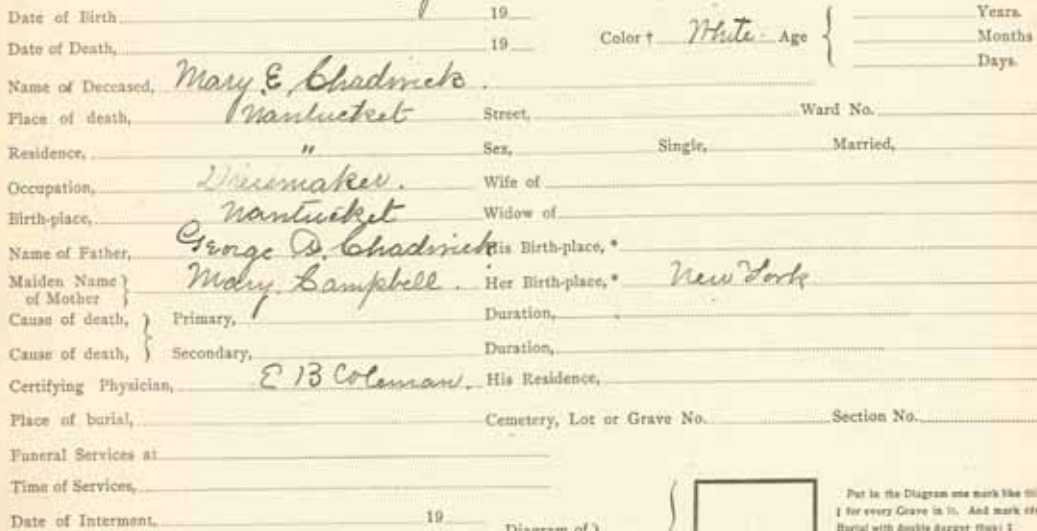 Date of Birth 19 Years.
Color † White Age Months
Date of Death, 19 Days.
Name of Deceased, Mary E. Chadwick.
Place of death, Nantucket Street, Ward No.
Residence, " Sex, Single, Married,
Occupation, Dressmaker. Wife of
Birth-place, Nantucket Widow of
Name of Father, George D. Chadwick His Birth-place, *
Maiden Name of Mother } Mary Campbell. Her Birth-place, * New York
Cause of death, } Primary, Duration,
Cause of death, } Secondary, Duration,
Certifying Physician, E B Coleman. His Residence,
Place of burial, Cemetery, Lot or Grave No. Section No.
Funeral Services at
Time of Services, Put in the Diagram one mark like
‡ for every Grave in it. And mark
Date of Interment, 19 Diagram of } Burial with double dagger thus: ‡